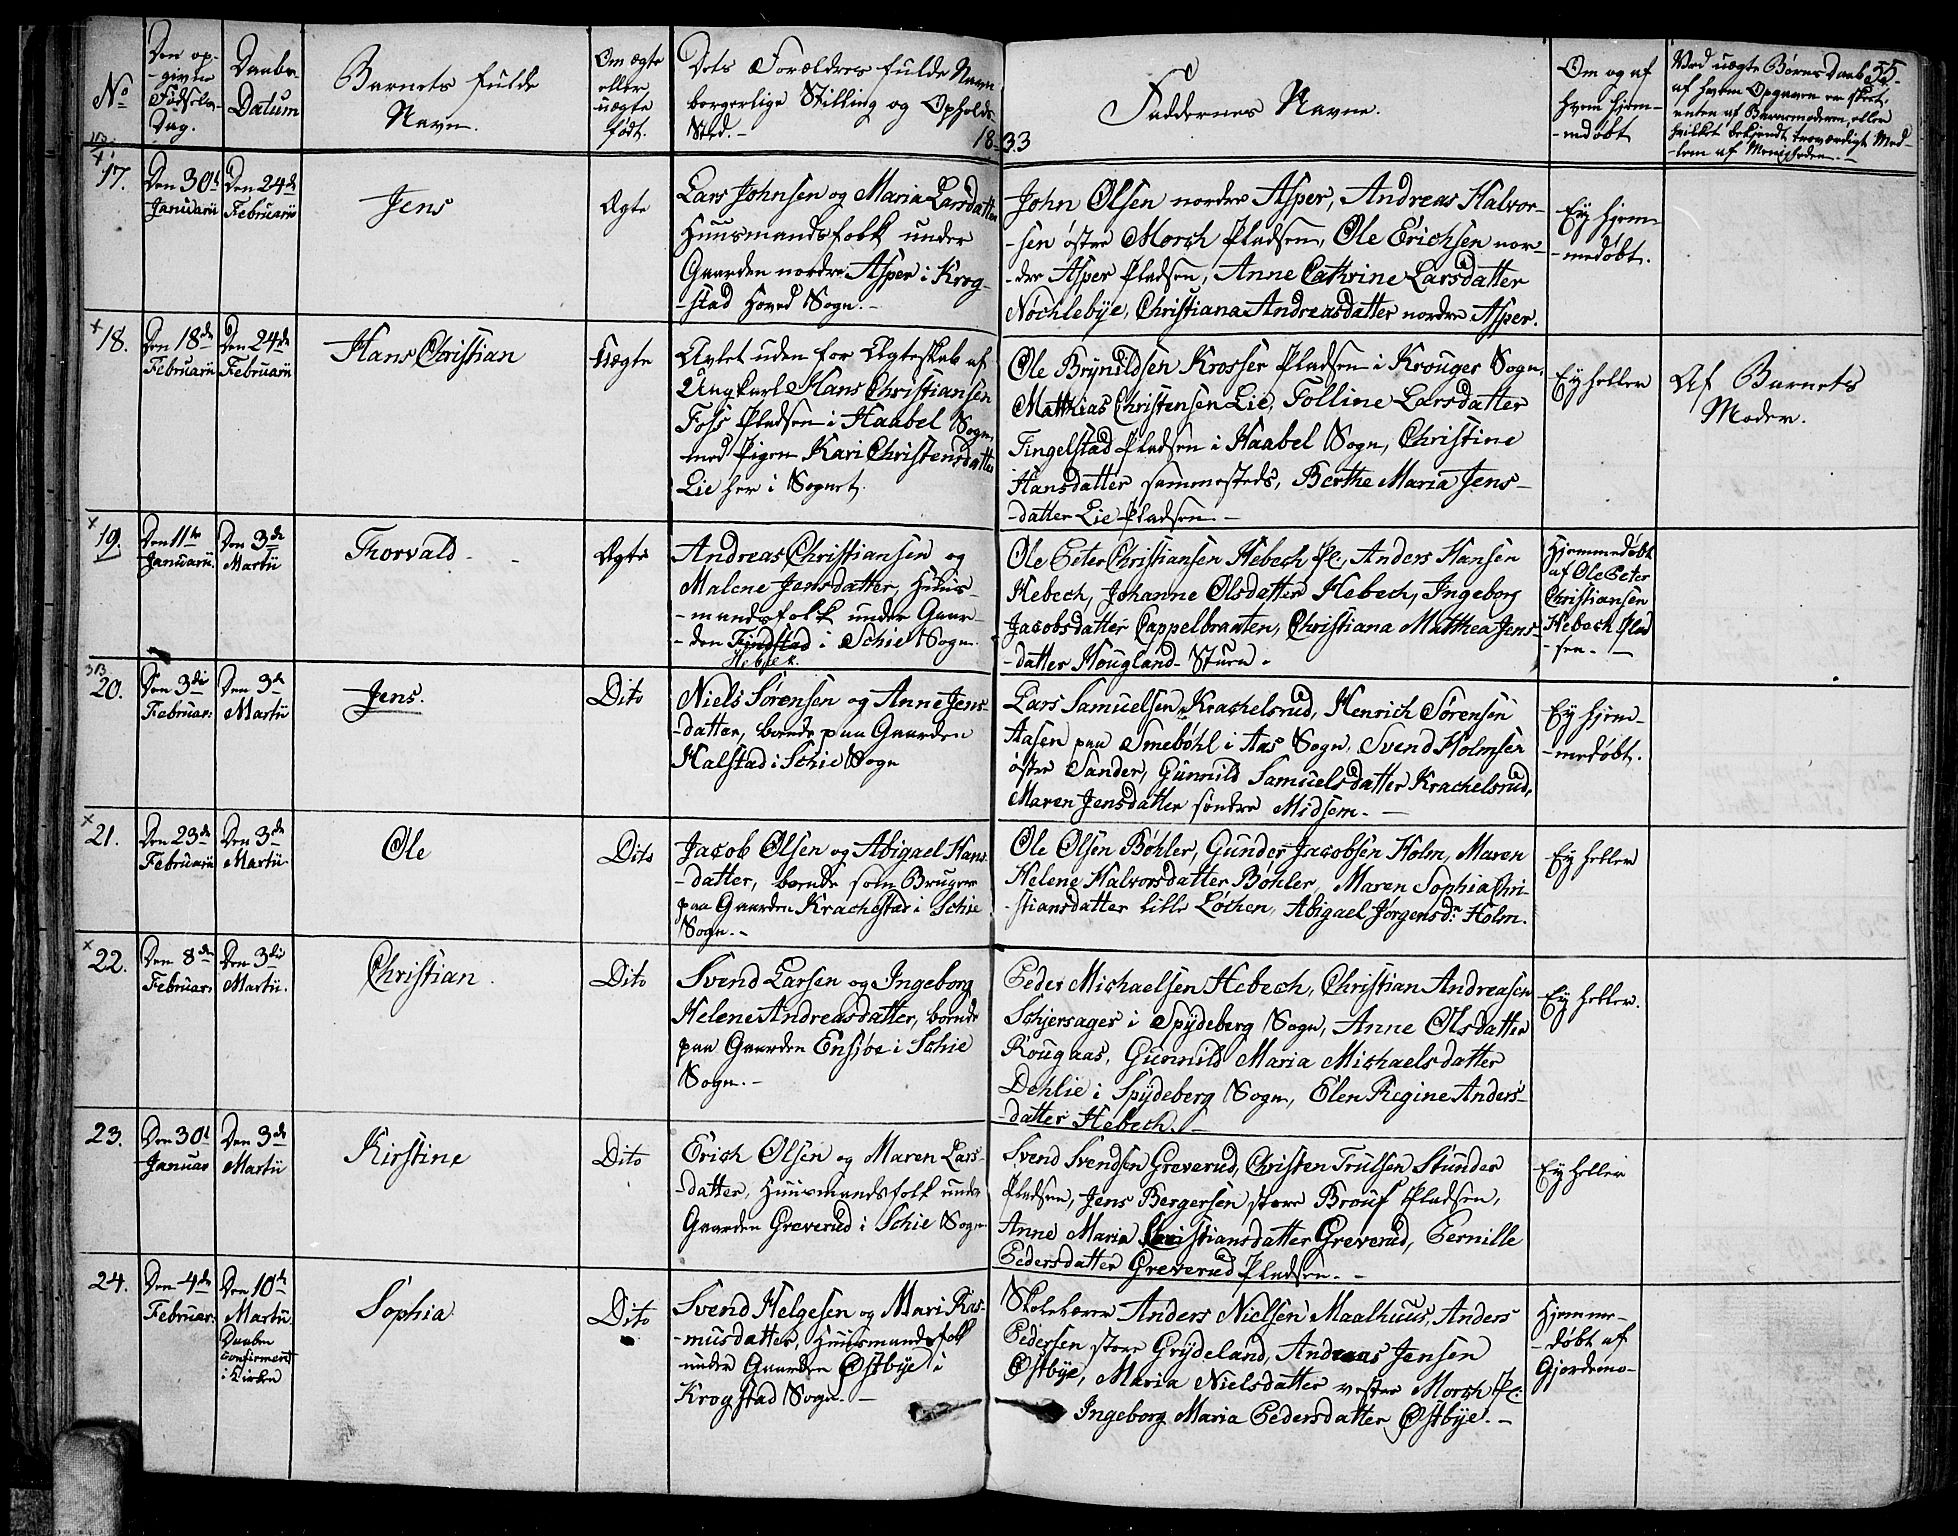 No
Den op-
-givne
Fødsels-
Dag.
Daabs
Datum
Barnets fulde
Navn.
Om ægte
eller
uægte
født.
Dets Forældres fulde Navn
borgerlige Stilling og Opholds-
Sted.-
1833
Faddernes Navne.
Om og af
hvem hjem-
-medøbt
55.
Ved uægte Børns Daab
af hvem Opgaven er skeet,
enten af Barnemoderen, eller
hvilket bekjendt troværdigt Med-
-lem af Menigheden.-
17.
Den 30t
Januarii
Den 24de
Februarii
Jens
Ægte
Lars Johnsen og Maria Larsdatter
Huusmandsfolk under
Gaarden nordre Asper i Krog-
-stad Hoved Sogn.-
John Olsen nordre Asper, Andreas Halvor-
-sen østre Morch Pladsen, Ole Erichsen nor-
-dre Asper Pladsen, Anne Cathrine Larsdatter
Nochlebye, Christiana Andreasdatter nordre Asper.
Ey hjem-
-medøbt.
18.
Den 18de
Februarii
Den 24de
Februarii
Hans Christian
Uægte
Avlet uden for Ægteskab af
Ungkarl Hans Christiansen
Foss Pladsen i Haabel Sogn,
med Pigen Kari Christensdatter
Lie her i Sognet.
Ole Brynildsen Krosser Pladsen i Krouger Sogn,
Matthias Christensen Lie, Tolline Larsdatter
Tingelstad Pladsen i Haabel Sogn, Christine
Hansdatter sammesteds, Berthe Maria Jens-
-datter Lie Pladsen.-
Ey heller
Af Barnets
Moder.
19.
Den 11te
Januarii.
Den 3de
Martii
Thorvald
Ægte
Andreas Christiansen og
Malene Jensdatter, Huus-
-mandsfolk under Gaar-
-den Findstad i Schie Sogn
Hebek.
Ole Peter Christiansen Hebech Pl., Anders Hansen
Hebech, Johanne Olsdatter Hebech, Ingeborg
Jacobsdatter Cappelbraaten, Christiana Matthea Jens-
-datter Hougland Stuen.
Hjemmedøbt
af Ole Peter
Christiansen
Hebech Plad
-sen.-
20.
Den 3die
Februar:
Den 3de
Martii
Jens.
Dito
Niels Sørensen og Anne Jens-
-datter, boende paa Gaarden
Halstad i Schie Sogn
Lars Samuelsen Krachelsrud, Henrich Sørensen
Aasen paa Smebøhl i Aas Sogn, Svend Holmsen
østre Sander, Gunnild Samuelsdatter Krachelsrud,
Maren Jensdatter søndre Midsem.-
Ey hjem-
-medøbt.
21.
Den 23de
Februarii
Den 3de
Martii
Ole
Dito
Jacob Olsen og Abigael Hans-
-datter, boende som Bruger
paa Gaarden Krachestad i Schie
Sogn.-
Ole Olsen Bøhler, Gunder Jacobsen Holm, Maren
Helene Halvorsdatter Bøhler, Maren Sophia Chri-
-stiansdatter lille Løchen, Abigael Jørgensdr Holm.
Ey heller
22.
Den 8de
Februar:
Den 3die
Martii.
Christian.
Dito
Svend Larsen og Ingeborg
Helene Andreasdatter, boende
paa Gaarden Ensjøe i Schie
Sogn.-
Peder Michaelsen Hebech, Christian Andreasen
Schjersager i Spydeberg Sogn, Anne Olsdatter
Rougaas, Gunnild Maria Michaelsdatter
Dehlie i Spydeberg Sogn, Elen Regine Anders-
-datter Hebech.-
Ey heller.
23.
Den 30t
Januar
Den 3de
Martii
Kirstine
Dito
Erich Olsen og Maren Lars-
-datter, Huusmandsfolk under
Gaarden Greverud i Schie Sogn
Svend Svendsen Greverud, Christen Trulsen Stunder
Pladsen, Jens Bergersen store Brouf Pladsen,
Anne Maria Christiansdatter Greverud, Pernille
Pedersdatter Greverud Pladsen.-
Ey heller
24.
Den 4de
Februar:
Den 10de
Martii.
Daaben
confirmeret
i Kirken
Sophia
Dito
Svend Helgesen og Mari Ras-
-musdatter, Huusmandsfolk
under Gaarden Østbye i
Krogstad Sogn.-
Skolelærer Anders Nielsen Maalhuus, Anders
Pedersen store Grydeland, Andreas Jensen
Østbye, Maria Nielsdatter vestre Morch Pl.
Ingeborg Maria Pedersdatter Østbye.-
Hjemme-
-døbt af
Gjordemo-